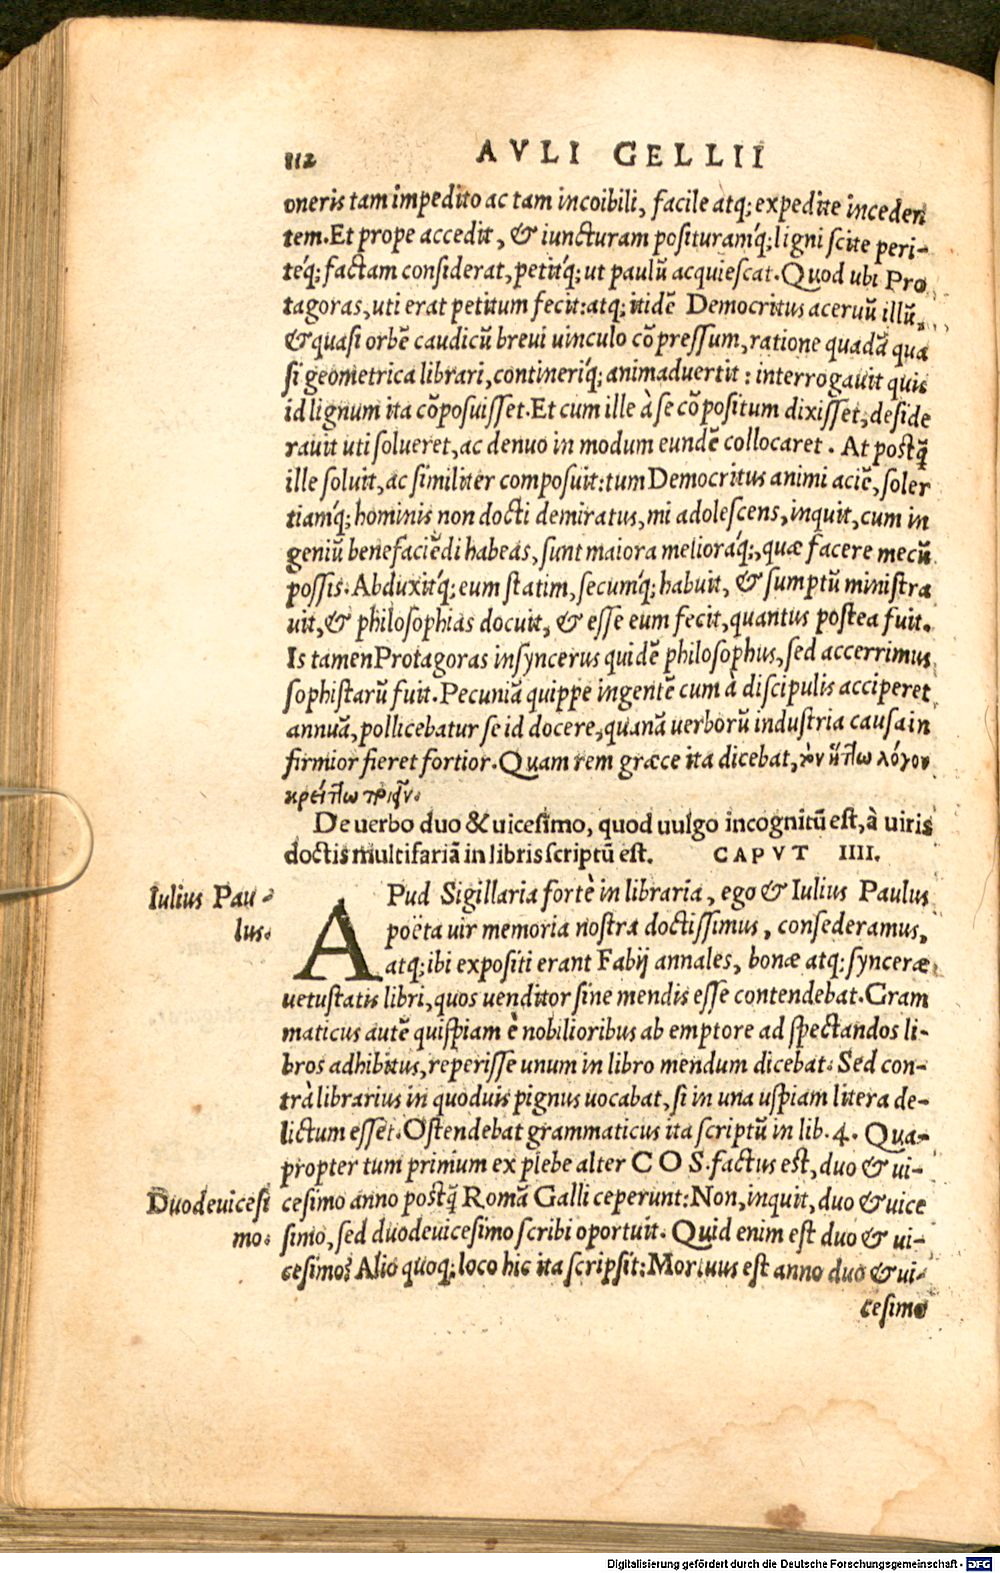 112 AVLI GELLII
oneris tam impedito ac tam incoibili, facile atq; expedite inceden
tem. Et prope accedit, & iuncturam posituramq́; ligni scite peri-
teq́; factam considerat, petitq́; ut paulũ acquiescat. Quod ubi Pro
tagoras, uti erat petitum fecit: atq; itidẽ Democritus aceruũ illũ,
& quasi orbẽ caudicũ breui uinculo cõpressum, ratione quadã qua
si geometrica librari, contineriq́; animaduertit: interrogauit quis
id lignum ita cõposuisset. Et cum ille à se cõpositum dixisset, deside
rauit uti solueret, ac denuo in modum eundẽ collocaret. At postq̃
ille soluit, ac similiter composuit: tum Democritus animi aciẽ, soler
tiamq́; hominis non docti demiratus, mi adolescens, inquit, cum in
geniũ benefaciẽdi habeas, sunt maiora melioraq́;, quæ facere mecũ
possis. Abduxitq́; eum statim, secumq́; habuit, & sumptũ ministra
uit, & philosophias docuit, & esse eum fecit, quantus postea fuit.
Is tamen Protagoras insyncerus quidẽ philosophus, sed accerrimus
sophistarũ fuit. Pecuniã quippe ingentẽ cum à discipulis acciperet
annuã, pollicebatur se id docere, quanã uerborũ industria causa in
firmior fieret fortior. Quam rem græce ita dicebat, τὸν ἥττω λόγον
κρείττω ποιεῖν.
De uerbo duo & uicesimo, quod uulgo incognitũ est, à uiris
doctis multifariã in libris scriptũ est. CAPVT IIII.
Iulius Pau-
lus.
APud Sigillaria fortè in libraria, ego & Iulius Paulus
poëta uir memoria nostra doctissimus, consederamus,
atq; ibi expositi erant Fabij annales, bonæ atq; synceræ
uetustatis libri, quos uenditor sine mendis esse contendebat. Gram
maticus autẽ quispiam è nobilioribus ab emptore ad spectandos li-
bros adhibitus, reperisse unum in libro mendum dicebat. Sed con-
trà librarius in quoduis pignus uocabat, si in una uspiam litera de-
lictum esset. Ostendebat grammaticus ita scriptũ in lib. 4. Qua-
propter tum primum ex plebe alter COS. factus est, duo & ui-
Duodeuicesi
mo.
cesimo anno postq̃ Romã Galli ceperunt: Non, inquit, duo & uice
simo, sed duodeuicesimo scribi oportuit. Quid enim est duo & ui-
cesimo? Alio quoq; loco hic ita scripsit: Mortuus est anno duo & ui-
cesimo
Digitalisierung gefördert durch die Deutsche Forschungsgemeinschaft - DFG